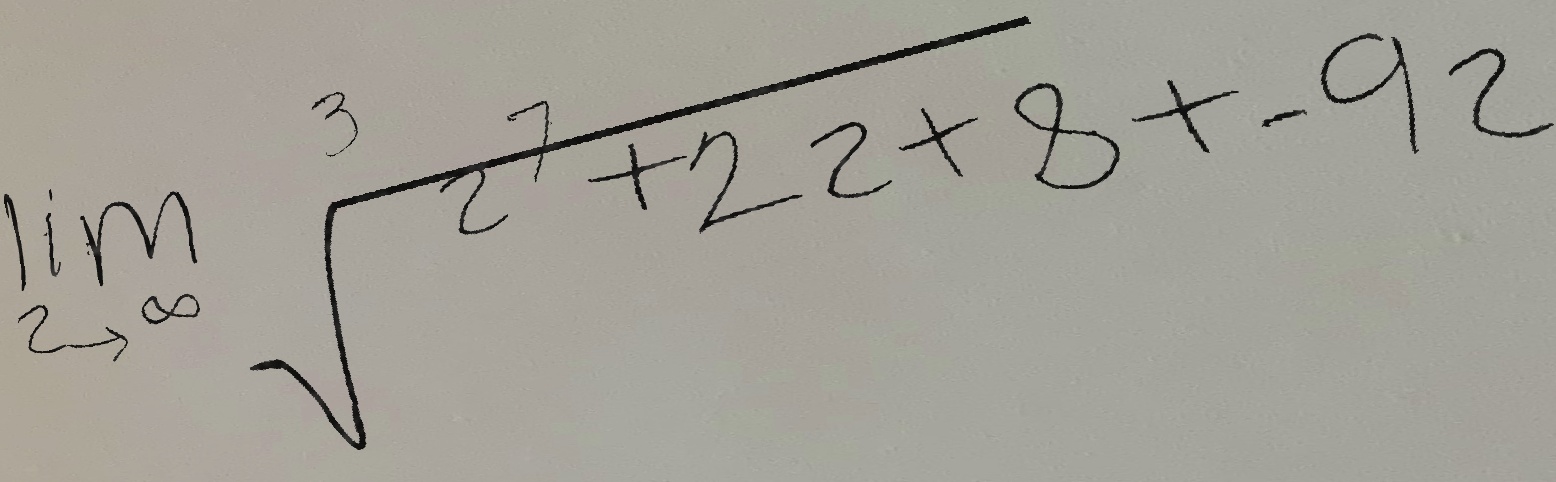 \lim_{z \to \infty} \sqrt[3]{z^7 + 2z + 8} + -9z